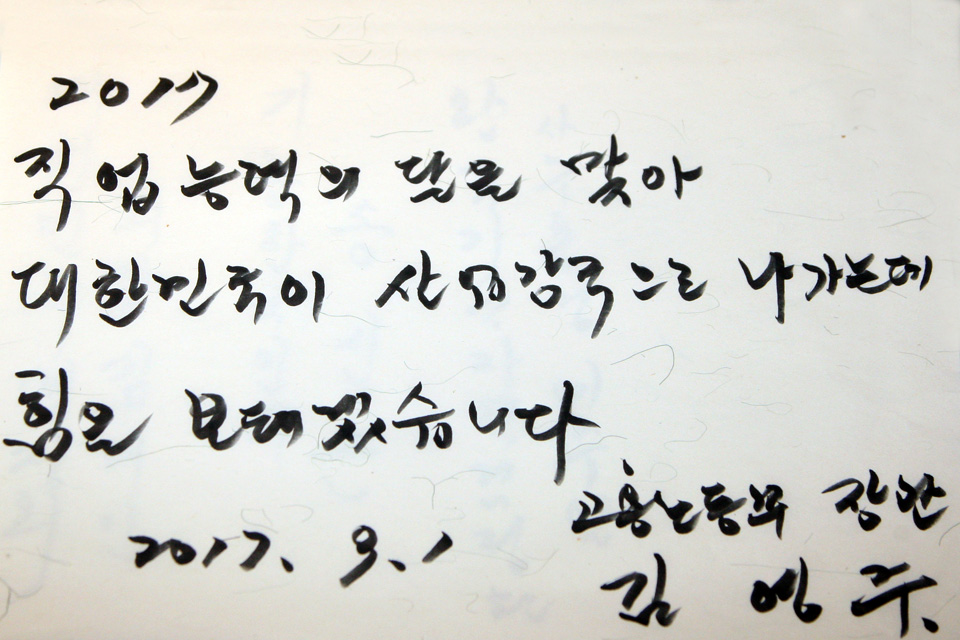 2017
직업능력의 달을 맞아
대한민국이 산업강국으로 나가는데
힘을 보태겠습니다
2017. 9. 1
고용노동부 장관
김 영 주.